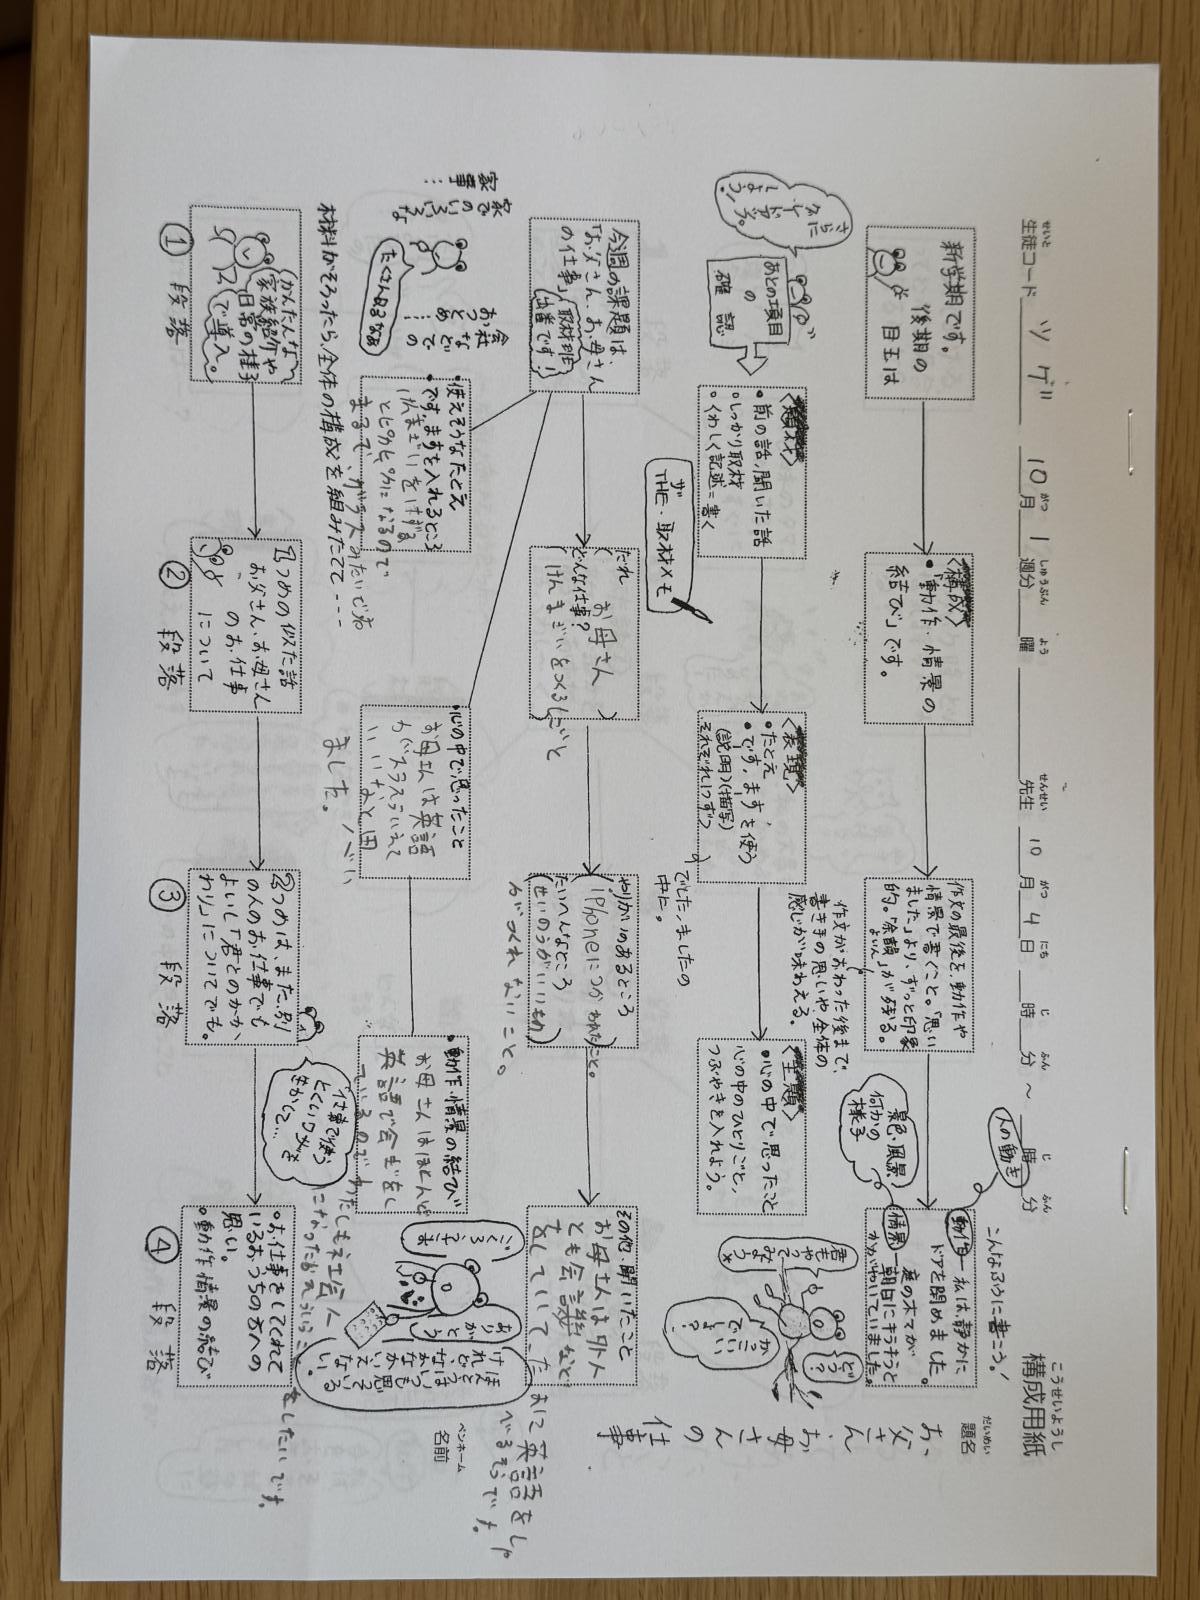 構成用紙
こうせいようし
生徒コード ツゲ 10月 1週分 曜 先生 10月 4日 時 分 ~ 時 分
せいと がつ しゅうぶん よう せんせい がつ にち じ ふん じ ふん
題名
だいめい
お父さん、お母さんの仕事
新学期です。
後期の
目玉は
〈構成〉
・「動作・情景の
結び」です。
作文の最後を、動作や
情景で書くこと。「思い
ました」より、ずっと印象
的。「余韻」が残る。
よいん
作文がおわった後まで、
書き手の思いや全体の
感じが味わえる。
こんなふうに書こう!
人の動き
動作―私は静かに
ドアを閉めました。
情景―庭の木々が
朝日にキラキラと
かがやいていました。
景色・風景
何かの
様子
さらに
グレードアップ
しよう!
あとの項目
の
確認
〈題材〉
・前の話、聞いた話
・しっかり取材
・くわしく記述=書く
ザ
THE・取材メモ
〈表現〉
・たとえ
・です。ます。を使う
(説明)(描写)
それぞれ1つずつ
でした、ましたの
中に。
〈主題〉
・心の中で思ったこと
心の中のひとりごと、
つぶやきを入れよう。
君も
やって
みよう
どう?
かっこ
いい
でしょ?
今週の課題は、
「お父さん、お母さん
の仕事」取材班
出番です!
だれ
(お母さん)
どんな仕事?
(けんまざいをつくるしごと)
やりがいのあるところ
(iPhoneにつかわれたこと。)
たいへんなところ
(せいのうがいいもの)
がつくれないこと。
その他、聞いたこと
お母さんは外人
とも会議などを
していて、た
まに英語をしゃ
べるそうです。
会社
などでの
おつとめ…
家での
いろいろな
家事…
たくさんあるなあ
・使えそうなたとえ
です。ますを入れるところ
けんまざいをはずる
とピカピカになるので
まるで、ガラスみたいでね
・心の中で思ったこと
お母さんは英語
がペラペラいえて
いいなと思い
ました。
・動作・情景の結び
お母さんはほとんど
英語で会ぎをし
ているので、わたしも社会人
になったら
をしたいです。
ごくろうさま
ありがとう
ほんとうは、いつも思っている
けれど、なかなかいえない。
ペンネーム
名前
材料がそろったら、全体の構成を組みたてて----
かんたんな
家族紹介や
日常の様子
で導入。
①
段落
1つめの似た話
お父さん、お母さん
のお仕事
について
②
段落
2つめは、また、別
の人のお仕事でも
よいし「君とのかか
わり」についてでも。
③
段落
仕事で使う
とくいワザを
生かして…
・お仕事をしてくれて
いるおうちの方への
思い。
・動作・情景の結び
④
段落